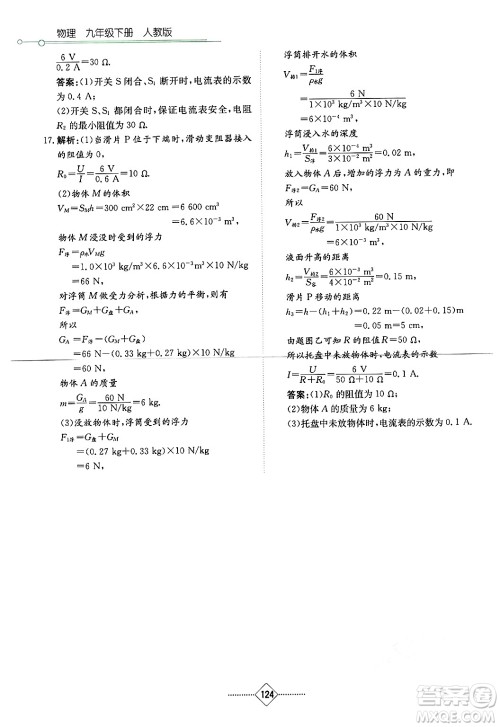 物理 九年级下册 人教版
6 V/0.2 A=30 Ω.
答案:(1)开关 S 闭合、S₁ 断开时,电流表的示数
为 0.4 A;
(2)开关 S、S₁ 都闭合时,保证电流表安全,电阻
R₂ 的最小阻值为 30 Ω.
17.解析:(1)当滑片 P 位于下端时,滑动变阻器接入
的阻值为 0,
R₀=U/I=6 V/0.6 A=10 Ω.
(2)物体 M 的体积
V_M=S_M h=300 cm²×22 cm=6 600 cm³
=6.6×10⁻³ m³,
物体 M 浸没时受到的浮力
F浮=ρ水V_M g
=1.0×10³ kg/m³×6.6×10⁻³ m³×10 N/kg
=66 N,
对浮筒 M 做受力分析,根据力的平衡,
F浮=G_M+G盘+G_A
所以
G_A=F浮-G盘-G_M
=66 N-(0.27 kg+0.33 kg)×10 N/kg
=60 N,
物体 A 的质量
m=G_A/g=60 N/10 N/kg=6 kg.
(3)没放物体时,浮筒受到的浮力
F₁浮=G盘+G_M
=(0.27 kg+0.33 kg)×10 N/kg
=6 N,
浮筒排开水的体积
V排1=F₁浮/ρ水g
=6 N/1×10³ kg/m³×10 N/kg=6×10⁻⁴ m³,
浮筒浸入水的深度
h₁=V排1/S浮=6×10⁻⁴ m³/3×10⁻² m²=0.02 m,
放物体 A 后,增加的浮力 F浮2=G_A=60 N,
所以
V排2=F浮2/ρ水g=60 N/1×10³ kg/m³×10 N/kg
=6×10⁻³ m³
液面升高的距离
h₂=V排2/S容=6×10⁻³ m³/6×10⁻² m²=0.1 m,
滑片 P 移动的距离
h=H-(h₁+h₂)=0.22 m-(0.02 m+0.15 m)
=0.05 m=5 cm,
由题图乙可知,对应的阻值 R=50 Ω
所以托盘中未放物体时,电流表的示数
I=U/R+R₀=6 V/50 Ω+10 Ω=0.1 A.
答案:(1)R₀ 的阻值为 10 Ω;
(2)物体 A 的质量为 6 kg;
(3)托盘中未放物体时,电流表的示数为 0.1 A.
124